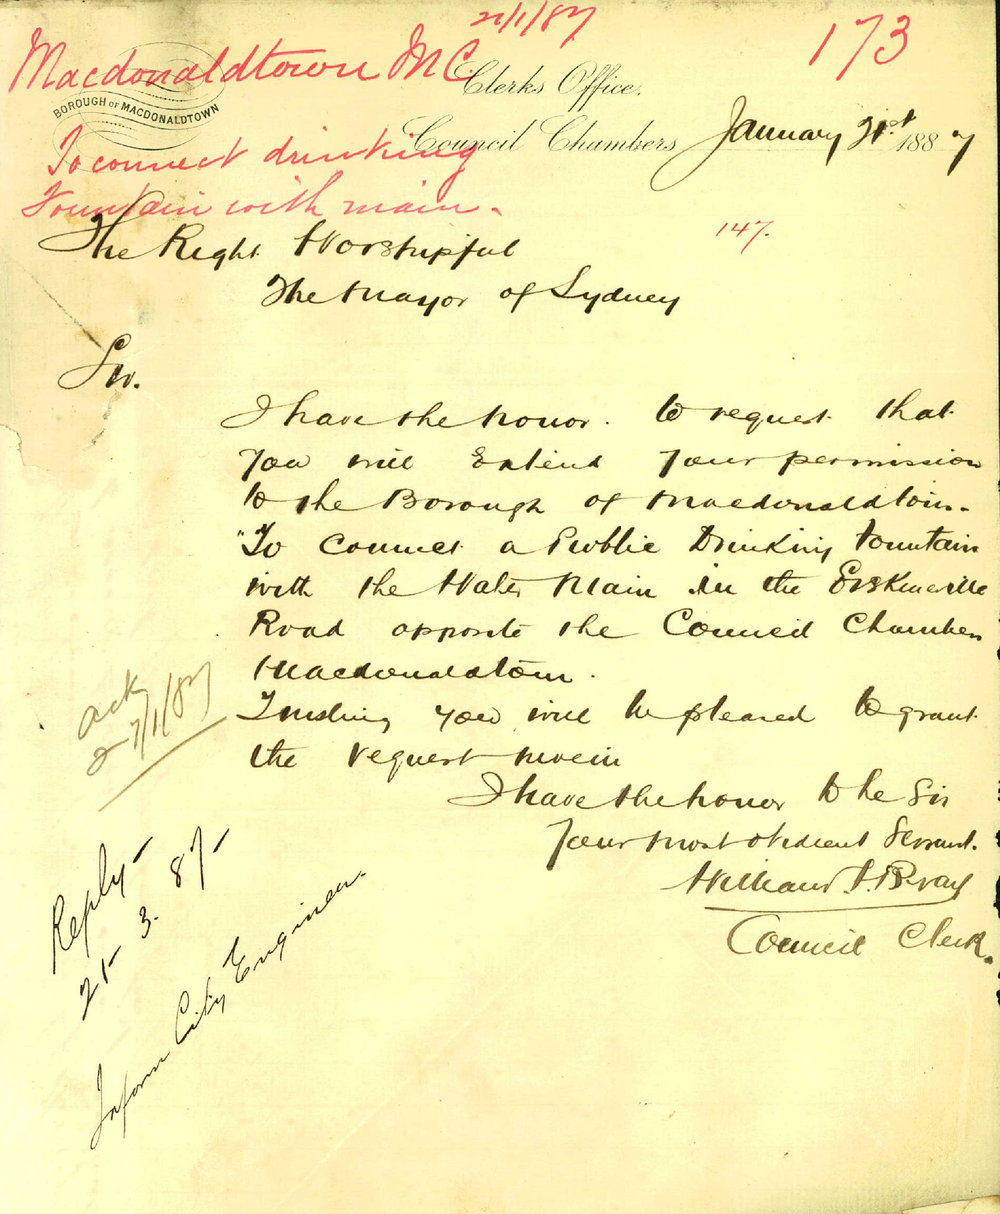 22/1/87
173
Macdonaldtown M C.
Clerks Office.
BOROUGH OF MACDONALDTOWN
Council Chambers January 21st 1887
To connect drinking
Fountain with main.
147.
The Right Worshipful
The Mayor of Sydney
Sir.
I have the honor. to request that
you will Extend your permission
to the Borough of Macdonaldtown.
"To Connect a Public Drinking Fountain
with the Water Main in the Erskineville
Road opposite the Council Chambers
Macdonaldtown.
Trusting you will be pleased to grant
the request herein
I have the honor to be Sir
Your most obedient Servant.
William J. Bray
Council Clerk.
ack
27/1/87
Reply-
21-3.87-
Inform City Engineer.